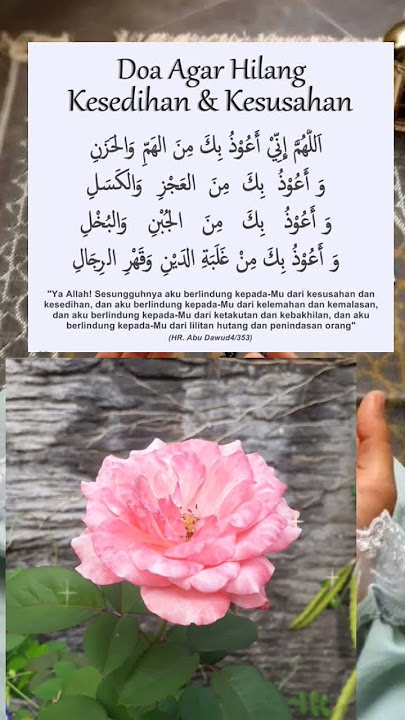 Doa Agar Hilang
Kesedihan & Kesusahan
اَللّٰهُمَّ إِنِّيْ أَعُوْذُ بِكَ مِنَ الهَمِّ وَالحَزَنِ
وَ أَعُوْذُ بِكَ مِنَ العَجْزِ وَالكَسَلِ
وَ أَعُوْذُ بِكَ مِنَ الجُبْنِ وَالبُخْلِ
وَ أَعُوْذُ بِكَ مِنْ غَلَبَةِ الدَّيْنِ وَقَهْرِ الرِجَالِ
"Ya Allah! Sesungguhnya aku berlindung kepada-Mu dari kesusahan dan
kesedihan, dan aku berlindung kepada-Mu dari kelemahan dan kemalasan,
dan aku berlindung kepada-Mu dari ketakutan dan kebakhilan, dan aku
berlindung kepada-Mu dari lilitan hutang dan penindasan orang"
(HR. Abu Dawud4/353)